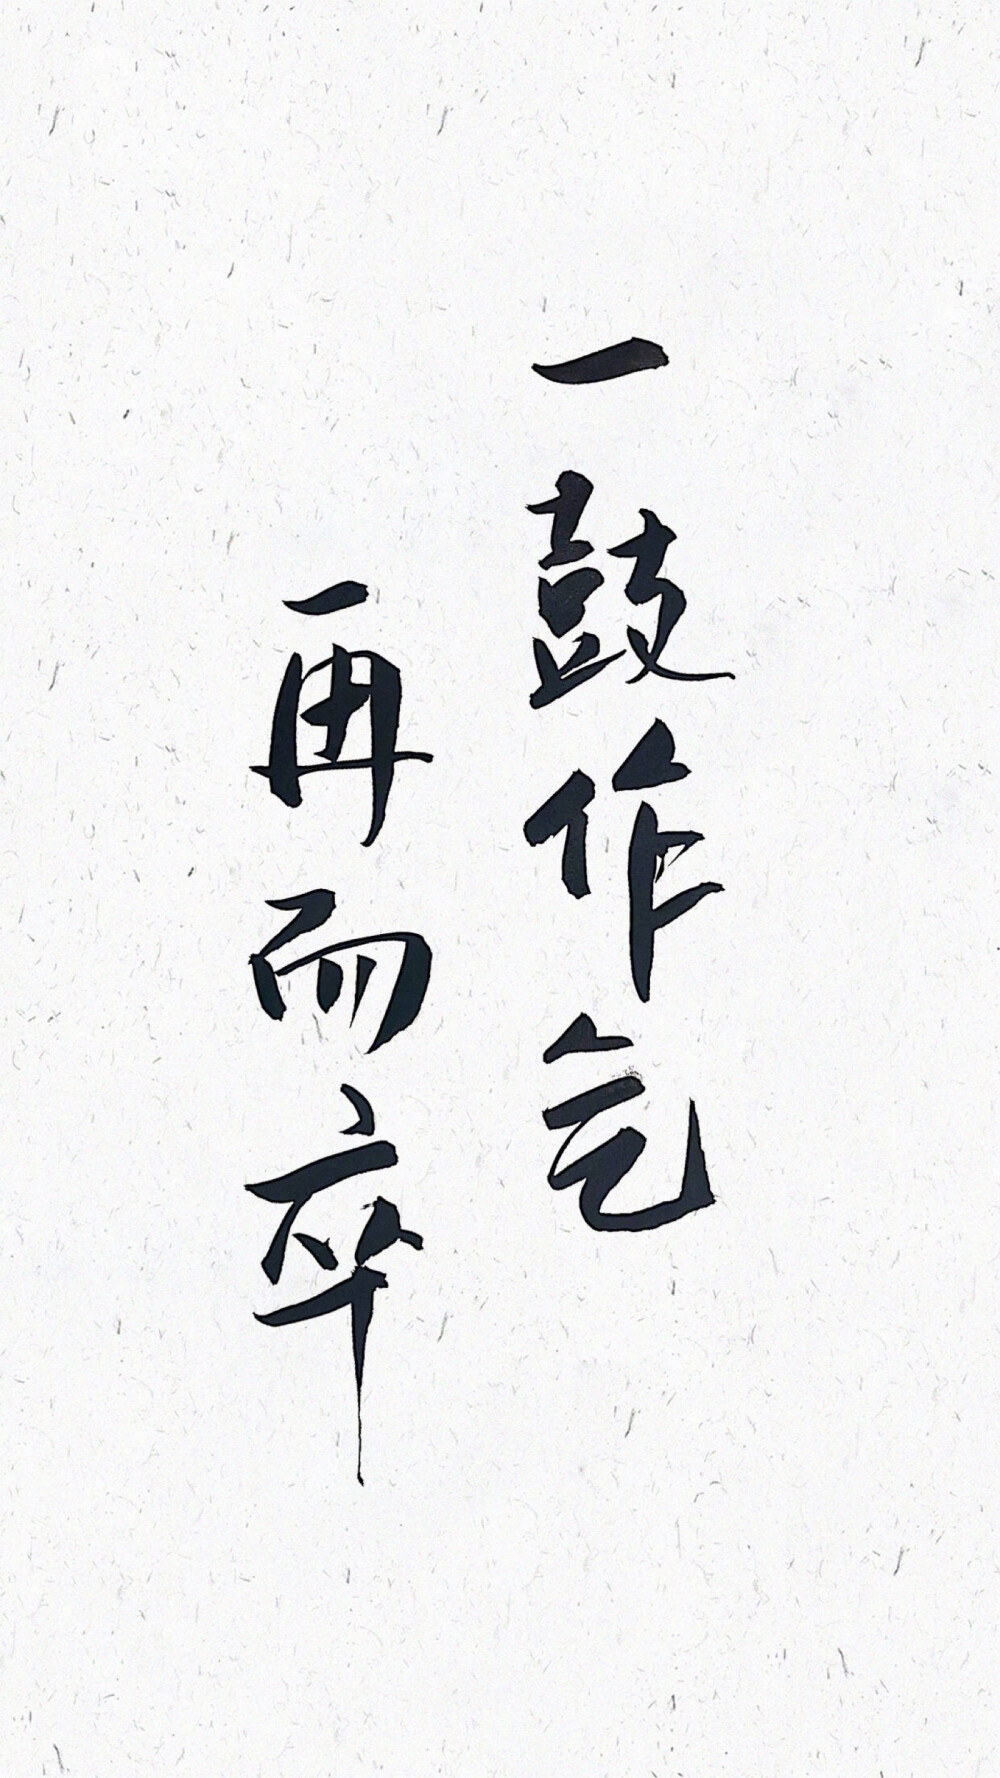 一鼓作气
再而卒